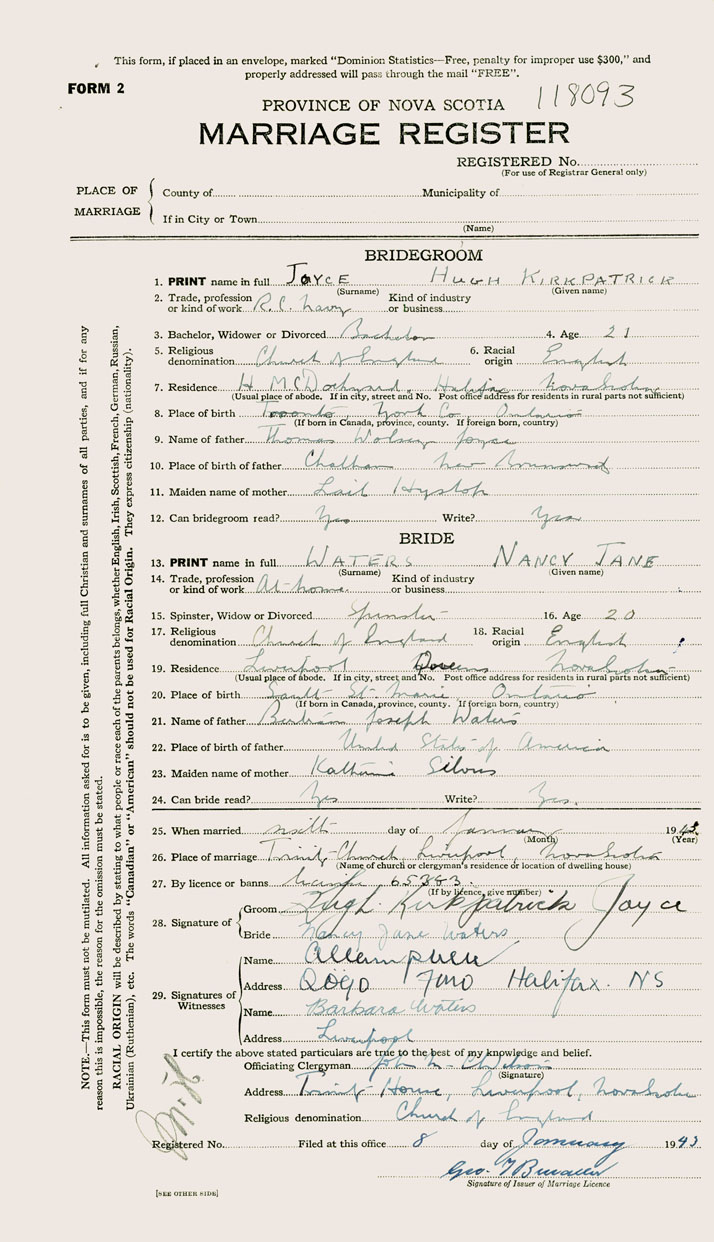 This form, if placed in an envelope, marked "Dominion Statistics—Free, penalty for improper use $300," and
properly addressed will pass through the mail "FREE".
FORM 2
PROVINCE OF NOVA SCOTIA 118093
MARRIAGE REGISTER
REGISTERED No.
(For use of Registrar General only)
PLACE OF MARRIAGE
County of Municipality of
If in City or Town
(Name)
BRIDEGROOM
1. PRINT name in full JOYCE HUGH KIRKPATRICK
(Surname) (Given name)
2. Trade, profession or kind of work R.C. Navy Kind of industry or business
3. Bachelor, Widower or Divorced Bachelor 4. Age 21
5. Religious denomination Church of England 6. Racial origin English
7. Residence H.M.C. Dockyard, Halifax Nova Scotia
(Usual place of abode. If in city, street and No. Post office address for residents in rural parts not sufficient)
8. Place of birth Toronto York Co. Ontario
(If born in Canada, province, county. If foreign born, country)
9. Name of father Thomas Wolsey Joyce
10. Place of birth of father Chatham New Brunswick
11. Maiden name of mother Hyslop
12. Can bridegroom read? Yes Write? Yes
BRIDE
13. PRINT name in full WATERS NANCY JANE
(Surname) (Given name)
14. Trade, profession or kind of work At home Kind of industry or business
15. Spinster, Widow or Divorced Spinster 16. Age 20
17. Religious denomination Church of England 18. Racial origin English
19. Residence Liverpool Queens Nova Scotia
(Usual place of abode. If in city, street and No. Post office address for residents in rural parts not sufficient)
20. Place of birth Sault St. Marie Ontario
(If born in Canada, province, county. If foreign born, country)
21. Name of father Bertram Joseph Waters
22. Place of birth of father United States of America
23. Maiden name of mother Katherine
24. Can bride read? Yes Write? Yes.
25. When married day of January 1943
(Month) (Year)
26. Place of marriage Trinity Church Liverpool, Nova Scotia
(Name of church or clergyman's residence or location of dwelling house)
27. By licence or banns 65383
(If by licence, give number)
28. Signature of
Groom Hugh Kirkpatrick Joyce
Bride Nancy Jane Waters
29. Signatures of Witnesses
Name
Address Halifax. NS
Name Barbara Waters
Address Liverpool
I certify the above stated particulars are true to the best of my knowledge and belief.
Officiating Clergyman John
(Signature)
Address Trinity House, Liverpool, Nova Scotia
Religious denomination Church of England
Registered No. Filed at this office 8 day of January 1943
Geo.
Signature of Issuer of Marriage Licence
[SEE OTHER SIDE]
NOTE.—This form must not be mutilated. All information asked for is to be given, including full Christian and surnames of all parties, and if for any
reason this is impossible, the reason for the omission must be stated.
RACIAL ORIGIN will be described by stating to what people or race each of the parents belongs, whether English, Irish, Scottish, French, German, Russian,
Ukrainian (Ruthenian), etc. The words "Canadian" or "American" should not be used for Racial Origin. They express citizenship (nationality).